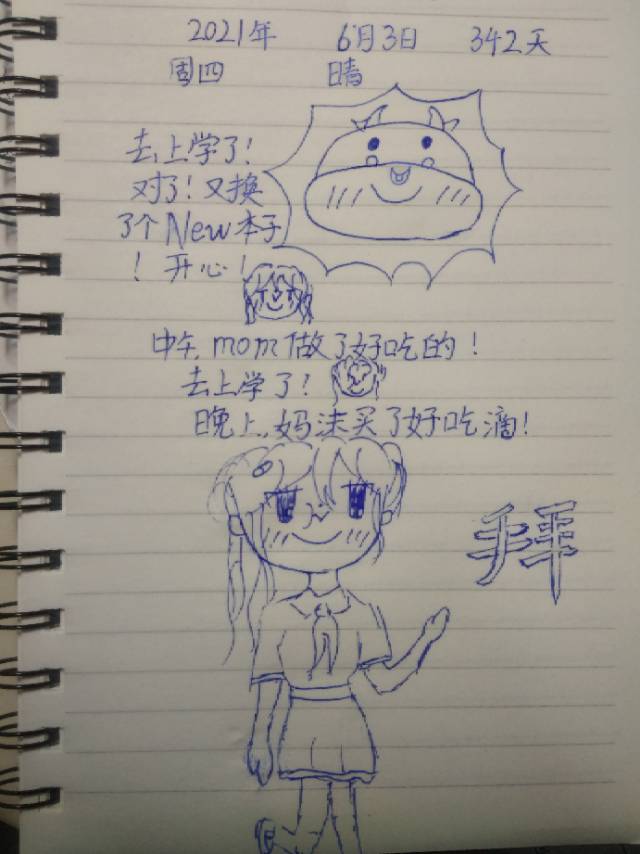 2021年 6月3日 342天
周四 晴
去上学了！
对了！又换
了个New本子
！开心！
中午，mom做了好吃的！
去上学了！
晚上，妈沫买了好吃滴！
拜